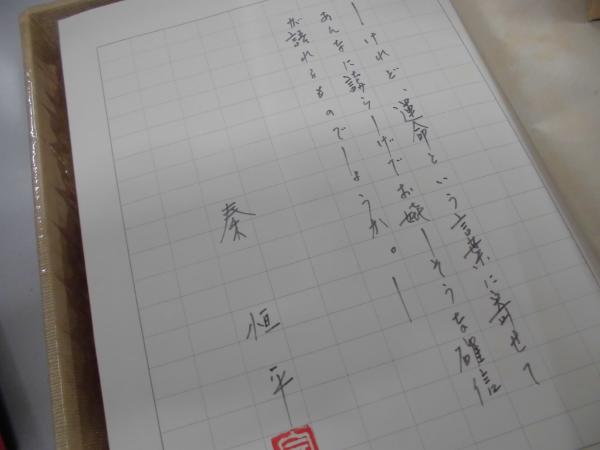 ―けれど、運命という言葉に寄せて
あんなに誇らしげでお嬉しそうな確信
が語れるものでしょうか。―
秦 恒平